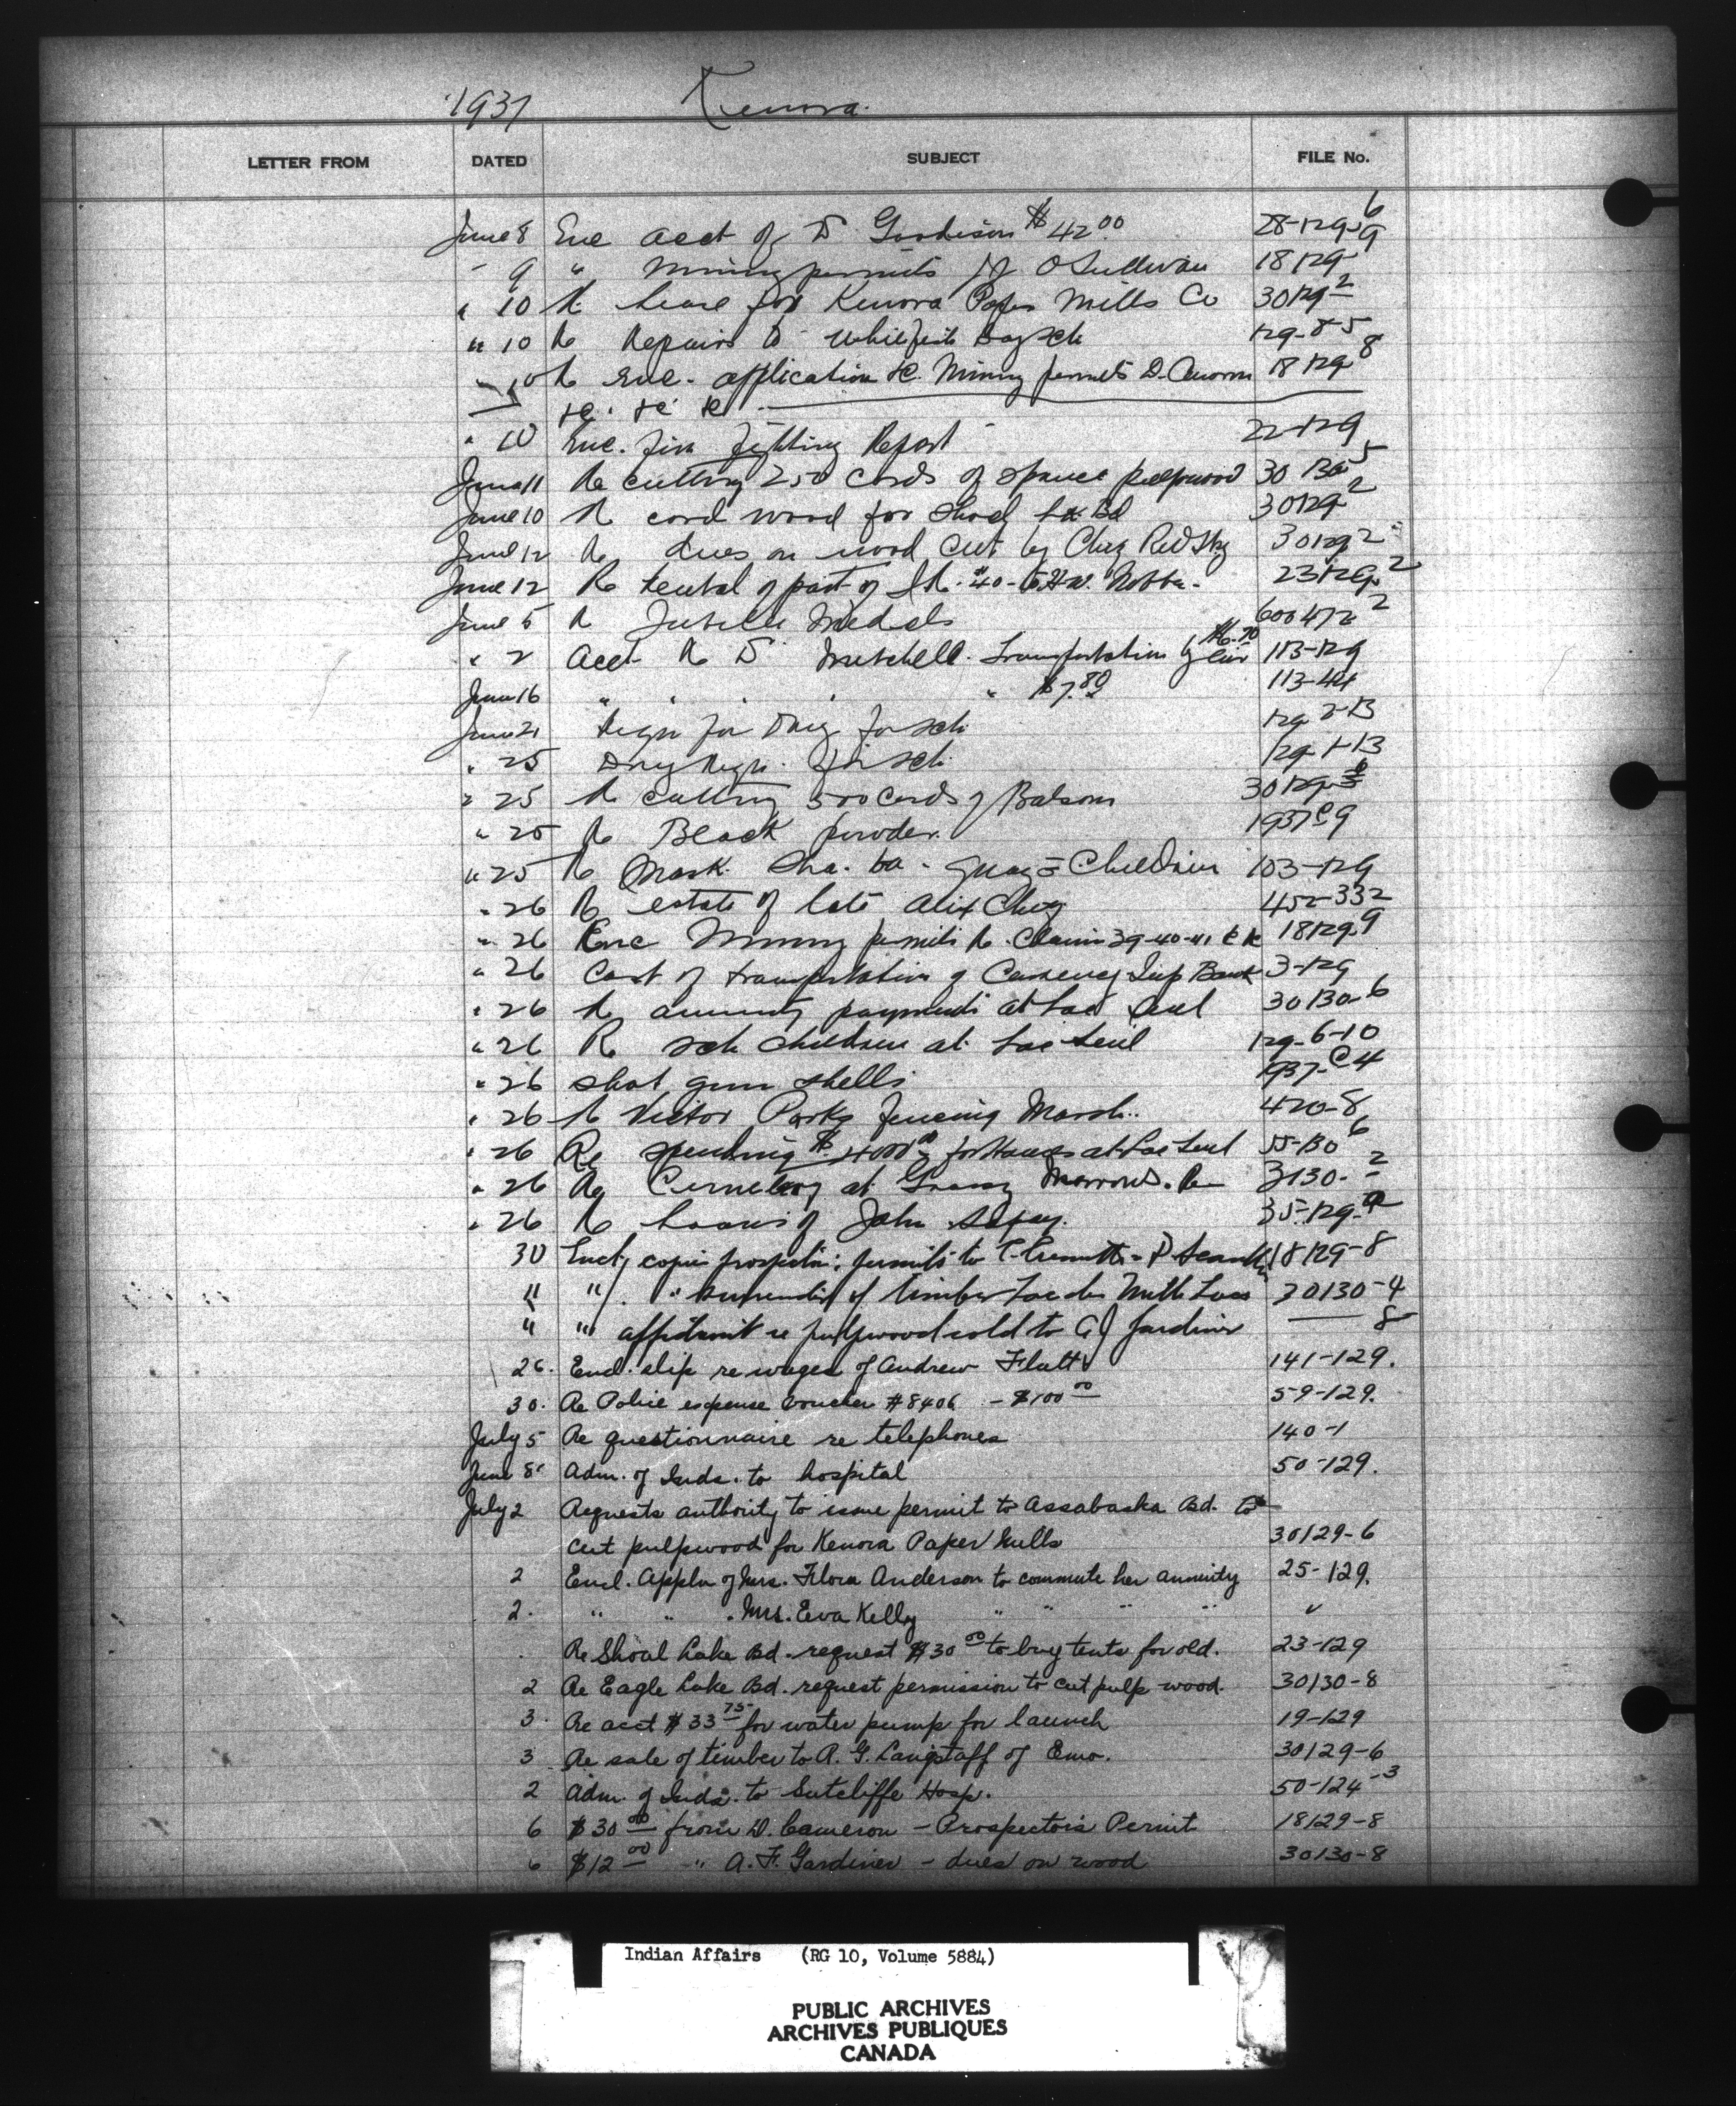 1937 Kenora.
LETTER FROM DATED SUBJECT FILE No.
June 8 Enc acct of D Goodison $42.00 28-129-6
" 9 " Mining permits J J O'Sullivan 18129-9
" 10 Re lease for Kenora Paper Mills Co 30129-2
" 10 Re Repairs to Whitefish Bay sch 129-8-5
" 10 Re Enc. application &c. Mining permits D. 18129-8
&c. &c &c
" 10 Enc. fire fighting Report 22-129
June 11 Re cutting 250 cords of spruce pulpwood 30
June 10 Re cord wood for Shoal Lk Bd 30129-2
June 12 Re dues on wood cut by Chas Redsky 30129-2
June 12 Re rental of part of I.R. #40 to H.W. 23129-2
June 5 Re Jubilee Medals 600472-2
" 2 Acct Re D Mitchell. Transportation by air $6.70 113-129
June 16 " " " $7.80 113-
June 21 Reqn for Drug for sch 129-2-13
" 25 Drug Reqn. for sch 129-1-13
" 25 Re cutting 500 cords of Balsam 30129-
" 25 Re Black powder. 1937 C 9
" 25 Re Mask. Sha. wa. Children 103-129
" 26 Re estate of late Alex 452-332
" 26 Enc Mining permits Re. Claims 39-40-41 &c 18129-9
" 26 Cost of transportation of Currency Imp Bank 3-129
" 26 Re annuity payments at Lac Seul 30130-6
" 26 Re sch children at Lac Seul 129-6-10
" 26 shot gun shells 1937-C4
" 26 Re Victor Parks fencing Marsh. 420-8
" 26 Re spending $4000.00 for Houses at Lac Seul 55-130-6
" 26 Re Cemetery at Grassy Narrows. Re 3130-2
" 26 Re loans of John 35-129-
30 Encl. copies prospectors permits to 18129-8
" " " surrender of timber Lac des Mille Lacs 30130-4
" " affidavit re pulpwood sold to A J Gardiner —— 8
26. Encl. slip re wages of Andrew Flatt 141-129.
30. Re Police expense voucher #8406 - $100 00 59-129.
July 5 Re questionnaire re telephones 140-1
June 8 Adm. of Inds. to hospital 50-129.
July 2 Requests authority to issue permit to Assabaska Bd. to
cut pulpwood for Kenora Paper Mills 30129-6
2 Encl. Appln of Mrs. Flora Anderson to commute her annuity 25-129.
2. " " . Mrs. Eva Kelly " " " " "
Re Shoal Lake Bd. request $30 00 to buy tents for old. 23-129
2 Re Eagle Lake Bd. request permission to cut pulp wood. 30130-8
3. Re acct $33 75 for water pump for launch 19-129
3 Re sale of timber to R. G. Langstaff of Emo. 30129-6
2 Adm. of Inds. to Sutcliffe Hosp. 50-124-3
6 $30 00 from D. Cameron - Prospectors Permit 18129-8
6 $12 00 " A. F. Gardiner - dues on wood 30130-8
Indian Affairs (RG 10, Volume 5884)
PUBLIC ARCHIVES
ARCHIVES PUBLIQUES
CANADA